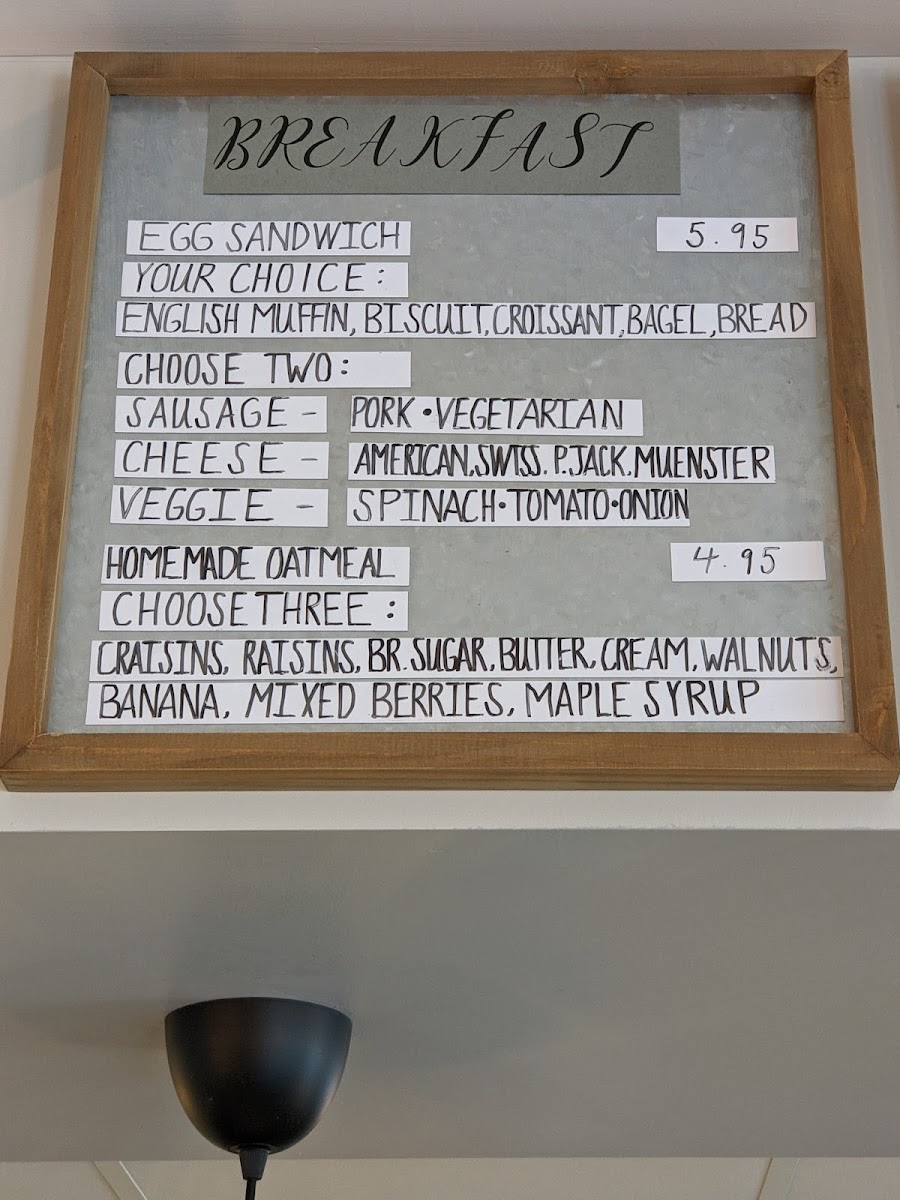 BREAKFAST
EGG SANDWICH 5.95
YOUR CHOICE:
ENGLISH MUFFIN, BISCUIT, CROISSANT, BAGEL, BREAD
CHOOSE TWO:
SAUSAGE - PORK • VEGETARIAN
CHEESE - AMERICAN, SWISS. P.JACK. MUENSTER
VEGGIE - SPINACH • TOMATO • ONION
HOMEMADE OATMEAL 4.95
CHOOSE THREE:
CRAISINS, RAISINS, BR. SUGAR, BUTTER, CREAM, WALNUTS,
BANANA, MIXED BERRIES, MAPLE SYRUP